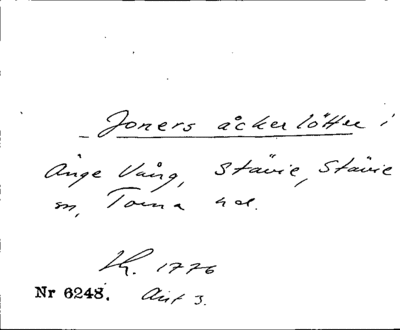 Joners åckerlötter i
Änge Vång, Stävie, Stävie
sn, Torna hd.
1776
Nr 6248. Avst 3.